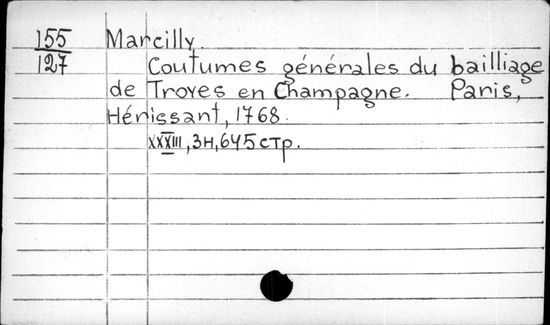 155 Marcilly.
127 Coutumes générales du bailliage
de Troyes en Champagne. Paris,
Hérissant, 1768.
XXXIII, 3н, 645 стр.